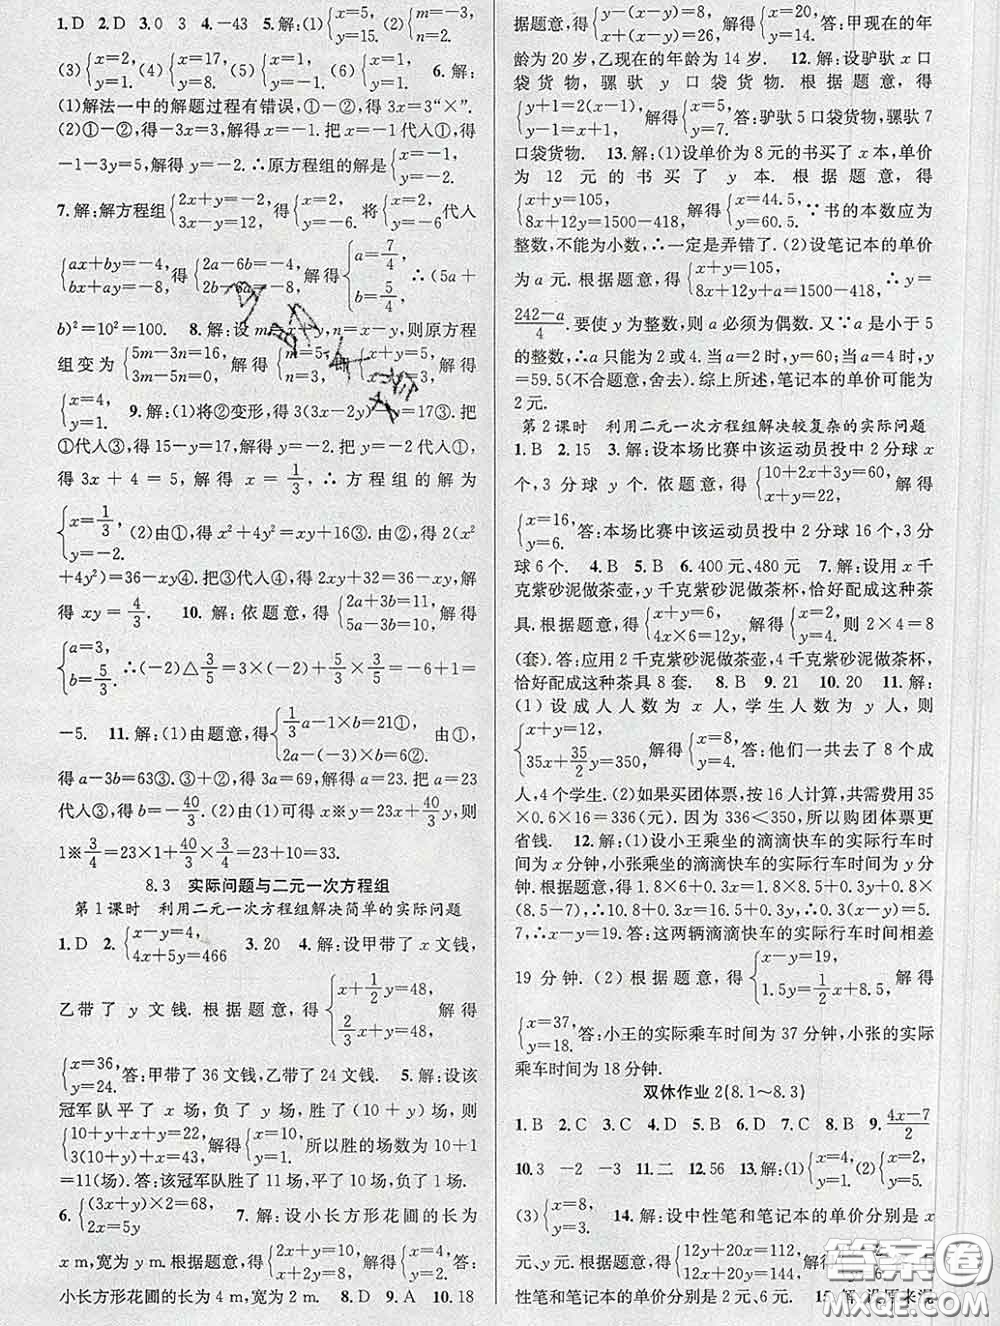 1.D 2.D 3.0 3 4.-43 5.解:(1){x=5, y=15. (2){m=-3, n=2.
(3){x=2, y=1. (4){x=17, y=8. (5){x=1, y=1. (6){x=2, y=1. 6.解:
(1)解法一中的解题过程有错误,①-②,得 3x=3“×”.
(2)①-②,得-3x=3,解得 x=-1. 把 x=-1 代入①,得
-1-3y=5,解得 y=-2. ∴原方程组的解是{x=-1, y=-2.
7.解:解方程组{2x+y=-2, 3x-y=-12, 得{x=-2, y=-6. 将{x=-2, y=-6 代入
{ax+by=-4, bx+ay=-8, 得{2a-6b=-4, 2b-6a=-8, 解得{a=7/4, b=5/4. ∴(5a+
b)²=10²=100. 8.解:设 m=x+y,n=x-y,则原方程
组变为{5m-3n=16, 3m-5n=0, 解得{m=5, n=3, 即{x+y=5, x-y=3, 解得
{x=4, y=1. 9.解:(1)将②变形,得 3(3x-2y)+y=17③.把
①代入③,得 15-y=17,解得 y=-2. 把 y=-2 代入①,
得 3x+4=5,解得 x=1/3,∴方程组的解为
{x=1/3, y=-2. (2)由①,得 x²+4y²=xy+16③.由②,得 2(x²
+4y²)=36-xy④.把③代入④,得 2xy+32=36-xy,解
得 xy=4/3. 10.解:依题意,得{2a+3b=11, 5a-3b=10, 解得
{a=3, b=5/3. ∴(-2)△3/5=3×(-2)+5/3×3/5=-6+1=
-5. 11.解:(1)由题意,得{1/3a-1×b=21①, 2a-(-3)×b=6②.
得 a-3b=63③.③+②,得 3a=69,解得 a=23.把 a=23
代入③,得 b=-40/3. (2)由(1)可得 x※y=23x+40/3y,则
1※3/4=23×1+40/3×3/4=23+10=33.
8.3 实际问题与二元一次方程组
第1课时 利用二元一次方程组解决简单的实际问题
1.D 2.{x-y=4, 4x+5y=466 3.20 4.解:设甲带了 x 文钱,
乙带了 y 文钱.根据题意,得{x+1/2y=48, 2/3x+y=48, 解得
{x=36, y=24. 答:甲带了 36 文钱,乙带了 24 文钱. 5.解:设该
冠军队平了 x 场,负了 y 场,胜了(10+y)场,则
{10+y+x+y=22, 3(10+y)+x=43, 解得{x=10, y=1. 所以胜的场数为 10+1
=11(场).答:该冠军队胜了 11 场,平了 10 场,负了 1 场.
6.{(3x+y)×2=68, 2x=5y 7.解:设小长方形花圃的长为
x m,宽为 y m.根据题意,得{2x+y=10, x+2y=8, 解得{x=4, y=2. 答:
小长方形花圃的长为 4 m,宽为 2 m. 8.D 9.A 10.18
据题意,得{y-(x-y)=8, x+(x-y)=26, 解得{x=20, y=14. 答:甲现在的年
龄为 20 岁,乙现在的年龄为 14 岁. 12.解:设驴驮 x 口
袋货物,骡驮 y 口袋货物.根据题意,得
{y+1=2(x-1), y-1=x+1, 解得{x=5, y=7. 答:驴驮 5 口袋货物,骡驮 7
口袋货物. 13.解:(1)设单价为 8 元的书买了 x 本,单价
为 12 元的书买了 y 本.根据题意,得
{x+y=105, 8x+12y=1500-418, 解得{x=44.5, y=60.5. ∵书的本数应为
整数,不能为小数,∴一定是弄错了.(2)设笔记本的单价
为 a 元.根据题意,得{x+y=105, 8x+12y+a=1500-418, ∴y=
242-a/4.要使 y 为整数,则 a 必须为偶数.又∵a 是小于 5
的整数,∴a 只能为 2 或 4.当 a=2 时,y=60;当 a=4 时,y
=59.5(不合题意,舍去).综上所述,笔记本的单价可能为
2 元.
第2课时 利用二元一次方程组解决较复杂的实际问题
1.B 2.15 3.解:设本场比赛中该运动员投中 2 分球 x
个,3 分球 y 个.依题意,得{10+2x+3y=60, x+y=22, 解得
{x=16, y=6. 答:本场比赛中该运动员投中 2 分球 16 个,3 分
球 6 个. 4.B 5.B 6.400 元、480 元 7.解:设用 x 千
克紫砂泥做茶壶,y 千克紫砂泥做茶杯,恰好配成这种茶
具.根据题意,得{x+y=6, 4x×6=12y, 解得{x=2, y=4. 则 2×4=8
(套).答:应用 2 千克紫砂泥做茶壶,4 千克紫砂泥做茶杯,
恰好配成这种茶具 8 套. 8.B 9.21 10.20 11.解:
(1)设成人人数为 x 人,学生人数为 y 人,则
{x+y=12, 35x+35/2y=350, 解得{x=8, y=4. 答:他们一共去了 8 个成
人,4 个学生.(2)如果买团体票,按 16 人计算,共需费用 35
×0.6×16=336(元).因为 336<350,所以购团体票更
省钱. 12.解:(1)设小王乘坐的滴滴快车的实际行车时
间为 x 分钟,小张乘坐的滴滴快车的实际行车时间为 y 分
钟.根据题意,得 1.8×6+0.3x=1.8×8.5+0.3y+0.8×
(8.5-7),∴10.8+0.3x=16.5+0.3y,∴0.3(x-y)=5.
7,∴x-y=19.答:这两辆滴滴快车的实际行车时间相差
19 分钟.(2)根据题意,得{x-y=19, 1.5y=1/2x+8.5, 解得
{x=37, y=18. 答:小王的实际乘车时间为 37 分钟,小张的实际
乘车时间为 18 分钟.
双休作业 2(8.1~8.3)
1.B 2.C 3.C 4.D 5.D 6.D 7.C 8.B 9.4x-7/2
10.3 -2 -3 11.二 12.56 13.解:(1){x=4, y=1. (2){x=2, y=1.
(3){x=8, y=3. 14.解:设中性笔和笔记本的单价分别是 x
元、y 元.根据题意,得{12y+20x=112, 12x+20y=144, 解得{x=2, y=6. 答:中
性笔和笔记本的单价分别是 2 元、6 元. 15.解:原来混
答案圈
MXQE.COM